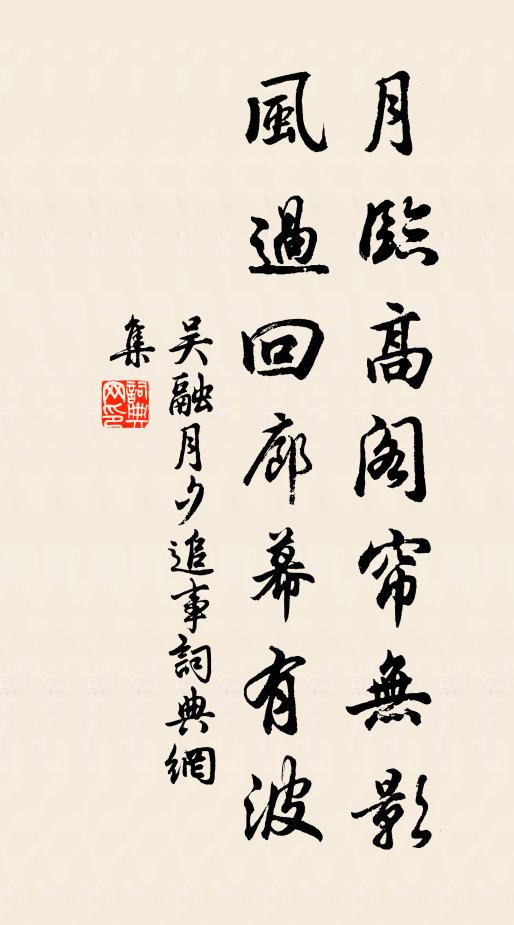 月臨高阁帘無影
風過回廊幕有波
吴融月夕追事詞典網
集
詞典网印